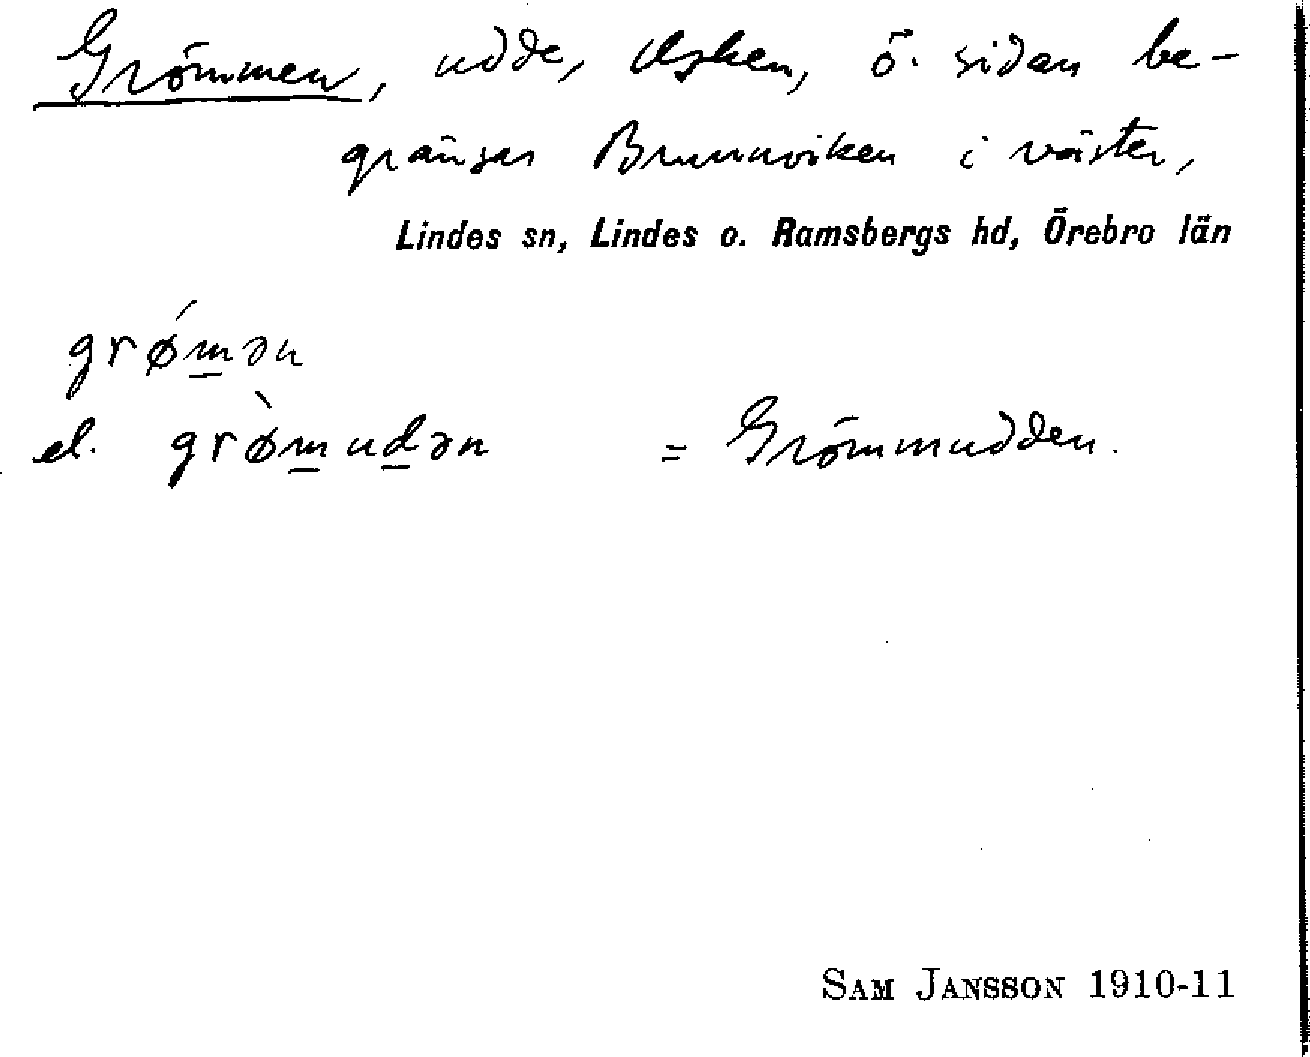 Grömmen, udde, Usken, ö. sidan be-
gränsar Brunnviken i väster,
Lindes sn, Lindes o. Ramsbergs hd, Örebro län
grǿm̲ən
el. grø̀m̲ud̲ən = Grömmudden.
SAM JANSSON 1910-11